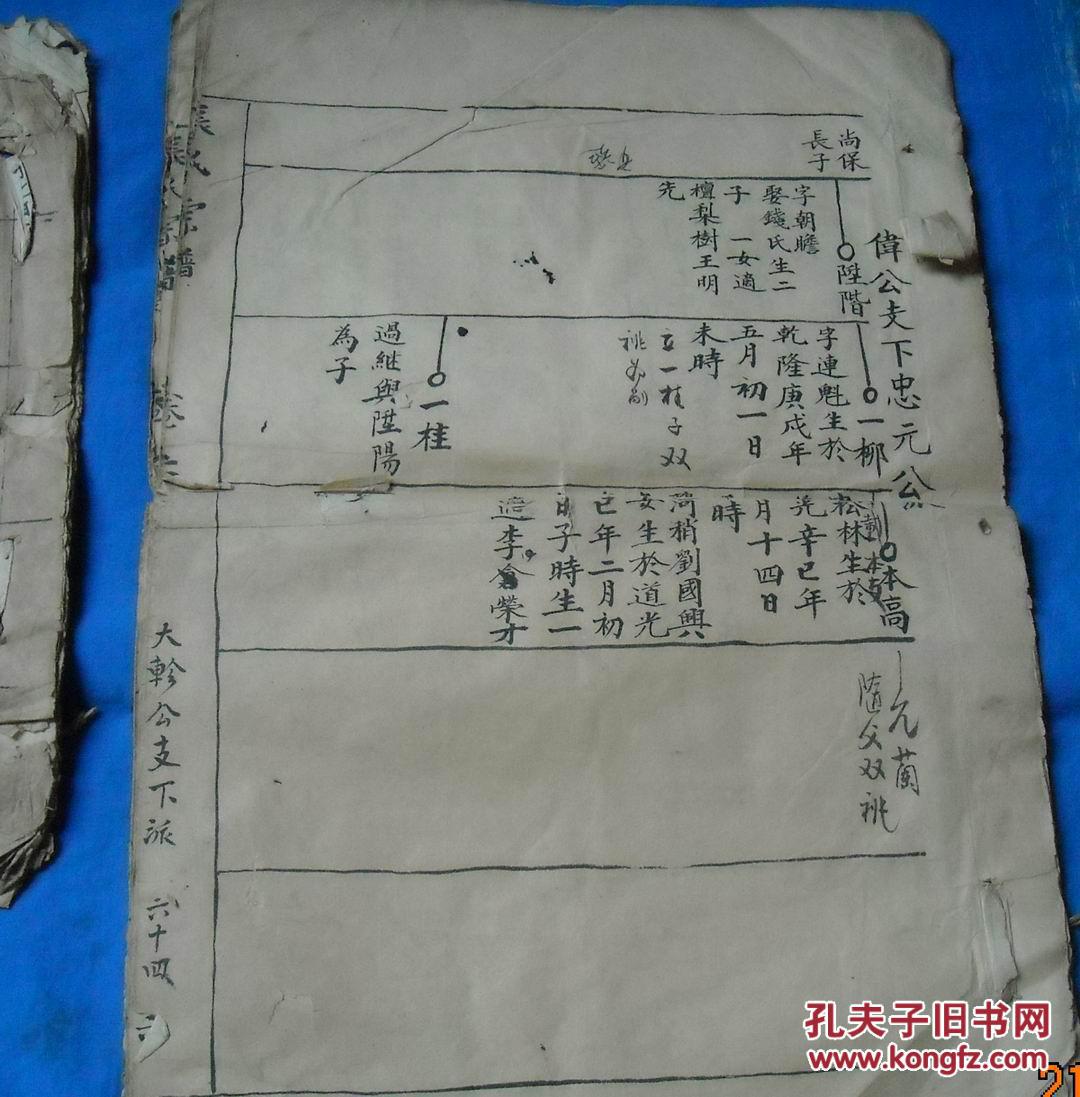 偉公支下忠元公
尚保
長子
陞階
字朝瞻
娶錢氏生二
子 一女適
檀梨樹王明
先
一柳
字連魁生於
乾隆庚戌年
五月初一日
未時
立一桂子双
祧
一桂
過継與陞陽
為子
本高
松林生於
光辛巳年
月十四日
時
灣梢劉國興
女生於道光
巳年二月初
日子時生一
適李 榮才
元蘭
隨父双祧
張氏宗譜
張氏宗譜
卷
大軫公支下派
六十四
孔夫子旧书网
www.kongfz.com
21